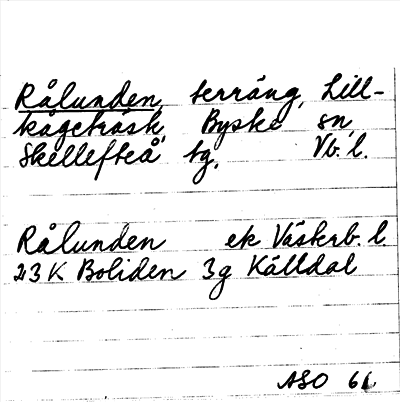 Rålunden, terräng, Lill-
kågeträsk, Byske sn,
Skellefteå tg, Vb. l.
Rålunden ek Västerb. l.
23 K Boliden 3g Källdal
ASO 61